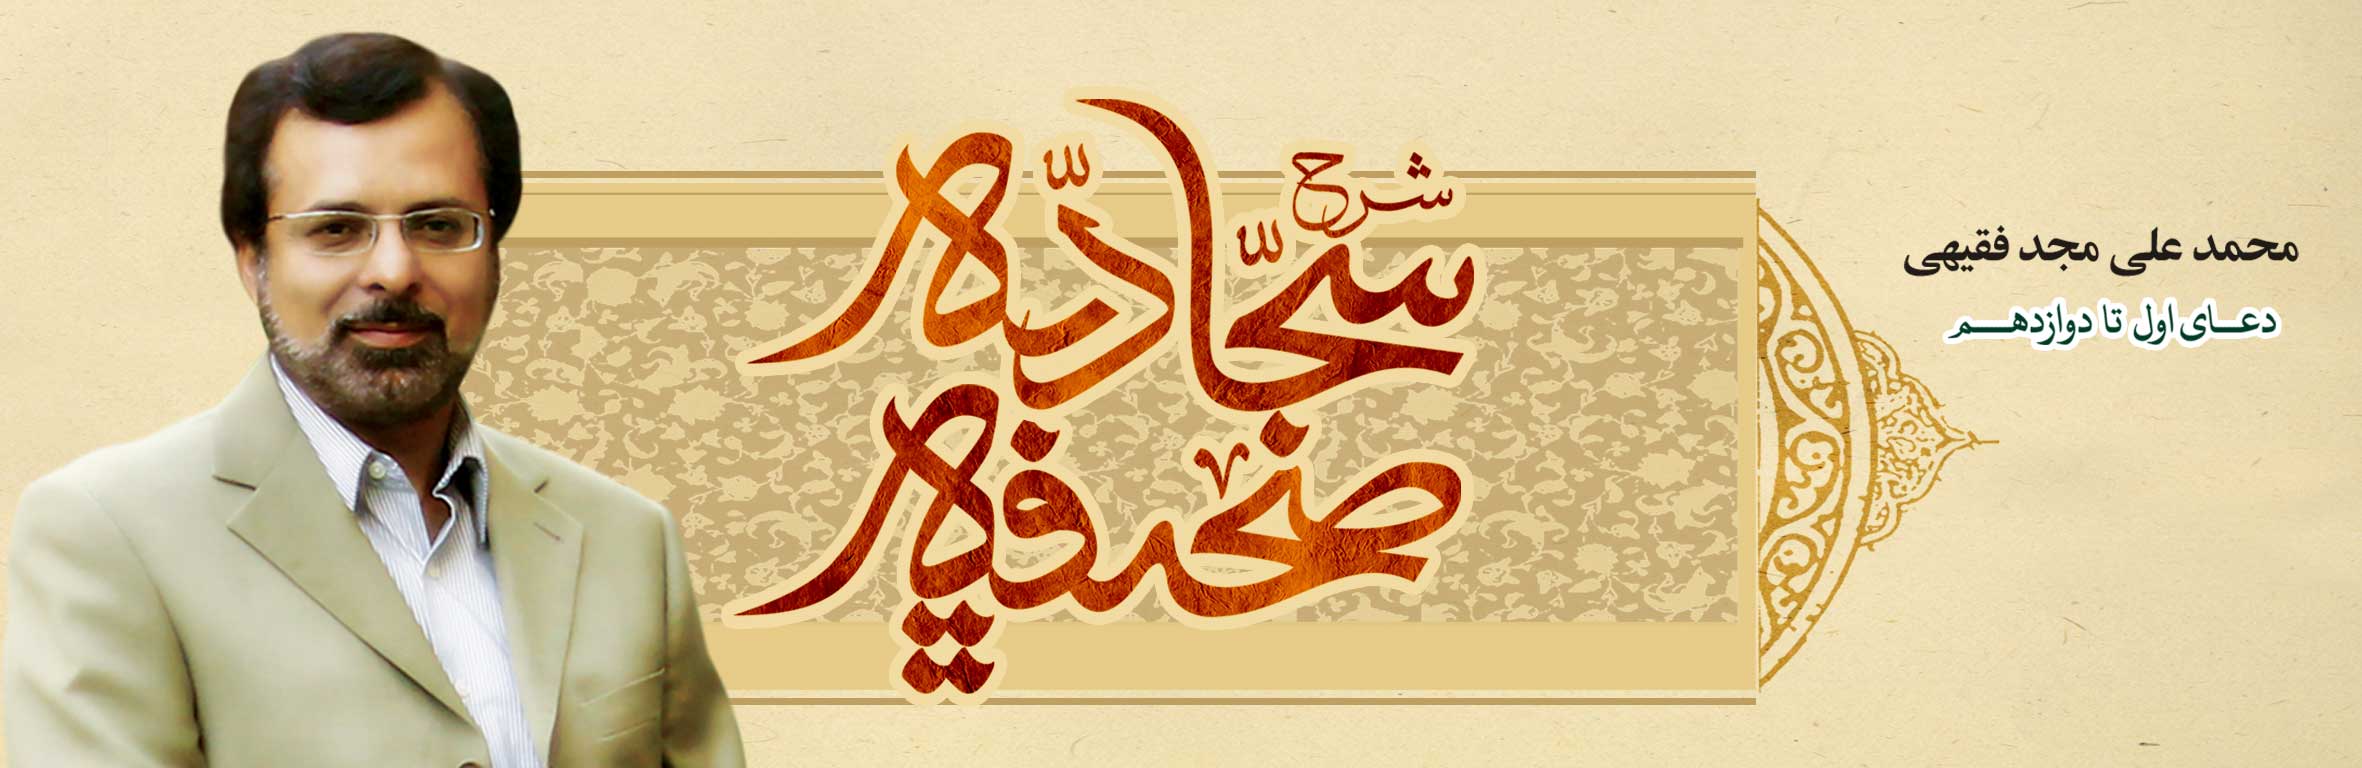 شرح
صحیفه
سجّادیّه
محمد علی مجد فقیهی
دعای اول تا دوازدهم